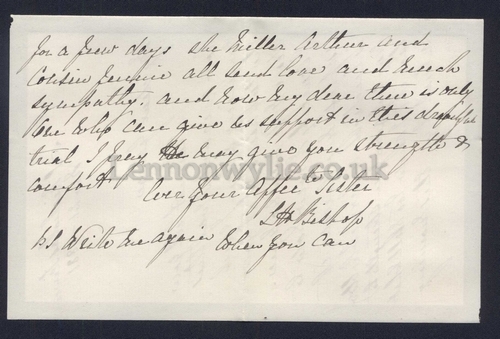 for a few days she Miller Arthur and
Cousin Fennie all send love and much
sympathy. and now my dear there is only
One who can give us support in this dreadful
trial I pray He may give you strength &
comfort Ever your Affec Sister
Bishop
PS Write me again when you can
Lennonwylie.co.uk